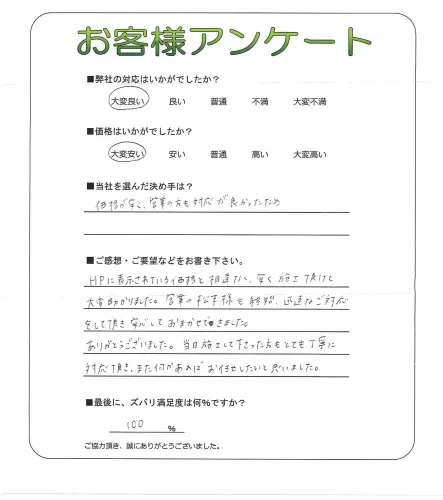 お客様アンケート
■弊社の対応はいかがでしたか？
大変良い 良い 普通 不満 大変不満
■価格はいかがでしたか？
大変安い 安い 普通 高い 大変高い
■当社を選んだ決め手は？
価格が安く、営業の方も対応が良かったため
■ご感想・ご要望などをお書き下さい。
HPに表示されている価格と相違ない、安く施工頂けて
大変助かりました。営業の松本様も終始、迅速なご対応
をして頂き安心しておまかせできました。
ありがとうございました。当日施工して下さった方もとても丁寧に
対応頂き、また何かあればお任せしたいと思いました。
■最後に、ズバリ満足度は何％ですか？
100 %
ご協力頂き、誠にありがとうございました。